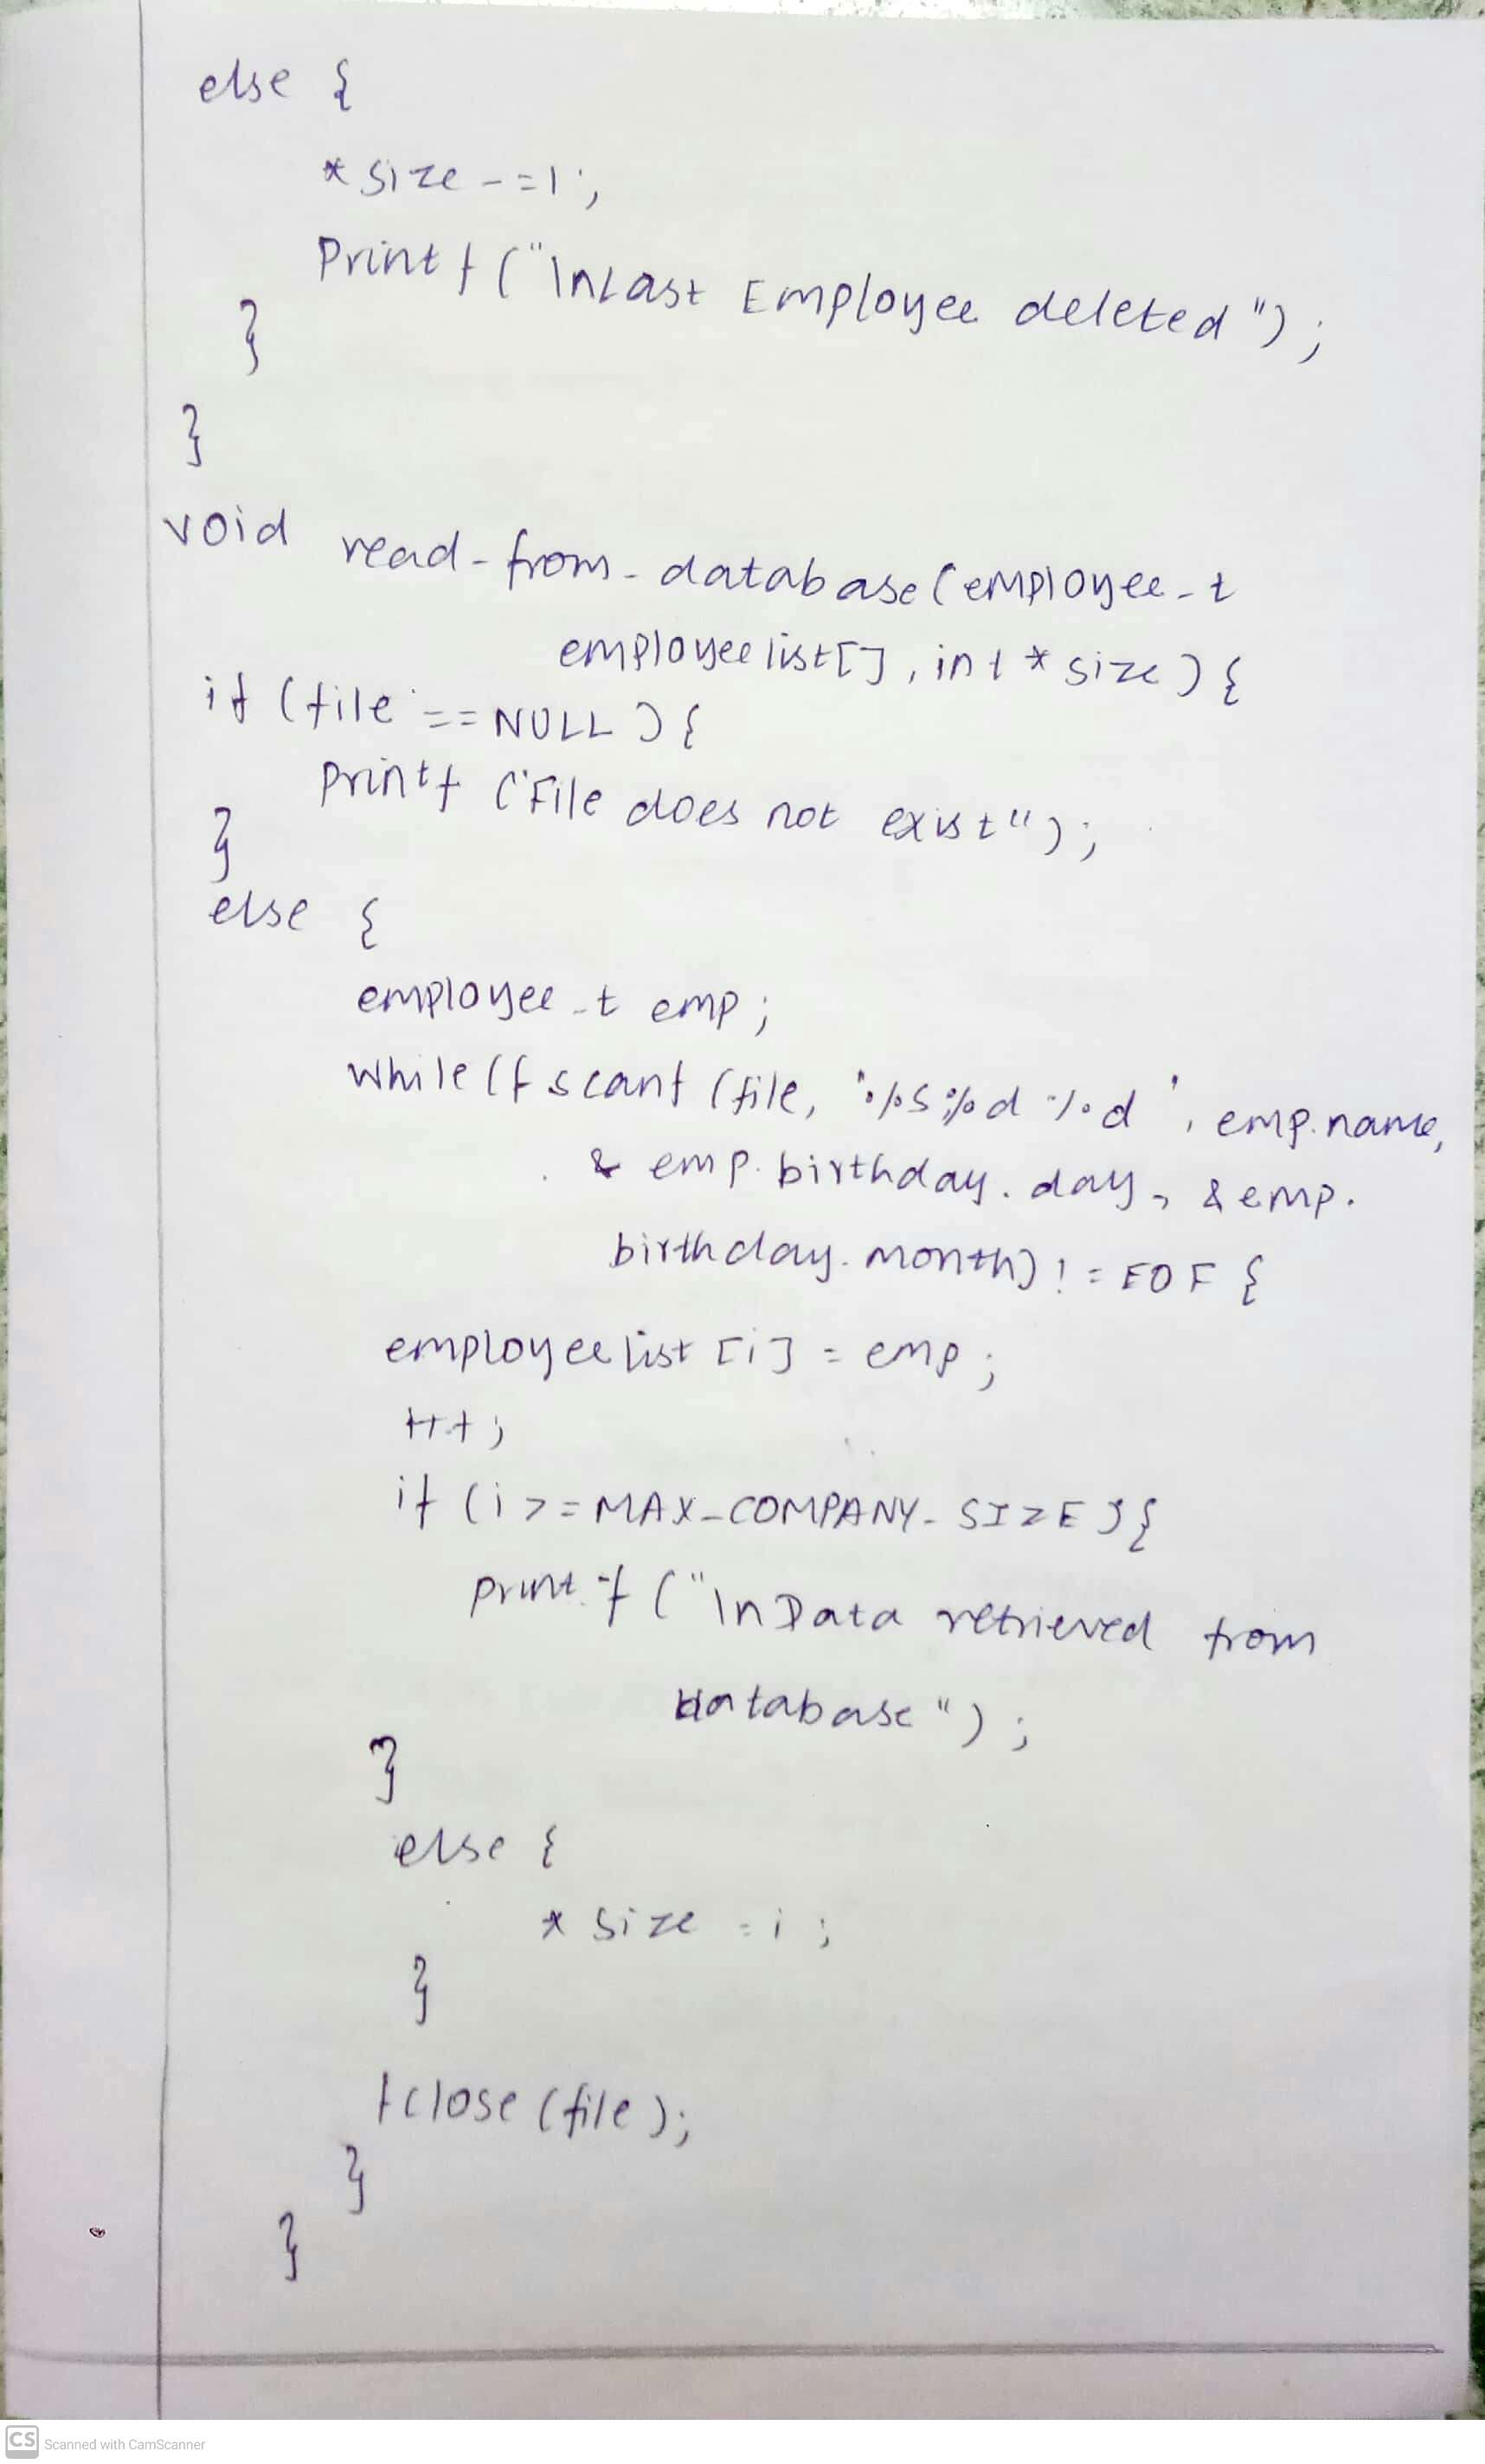 else {
*size -=1;
Printf("\nLast Employee deleted");
}
}
void read-from-database(employee-t
employeelist[], int *size) {
if (file == NULL) {
printf ("File does not exist");
}
else {
employee-t emp;
while(fscanf (file, "%s%d %d", emp.name,
& emp.birthday.day, &emp.
birthday.month) != EOF {
employeelist [i] = emp;
++;
if (i >= MAX-COMPANY-SIZE) {
printf ("\nData retrieved from
database");
}
else {
* size = i;
}
fclose (file);
}
}
CS Scanned with CamScanner